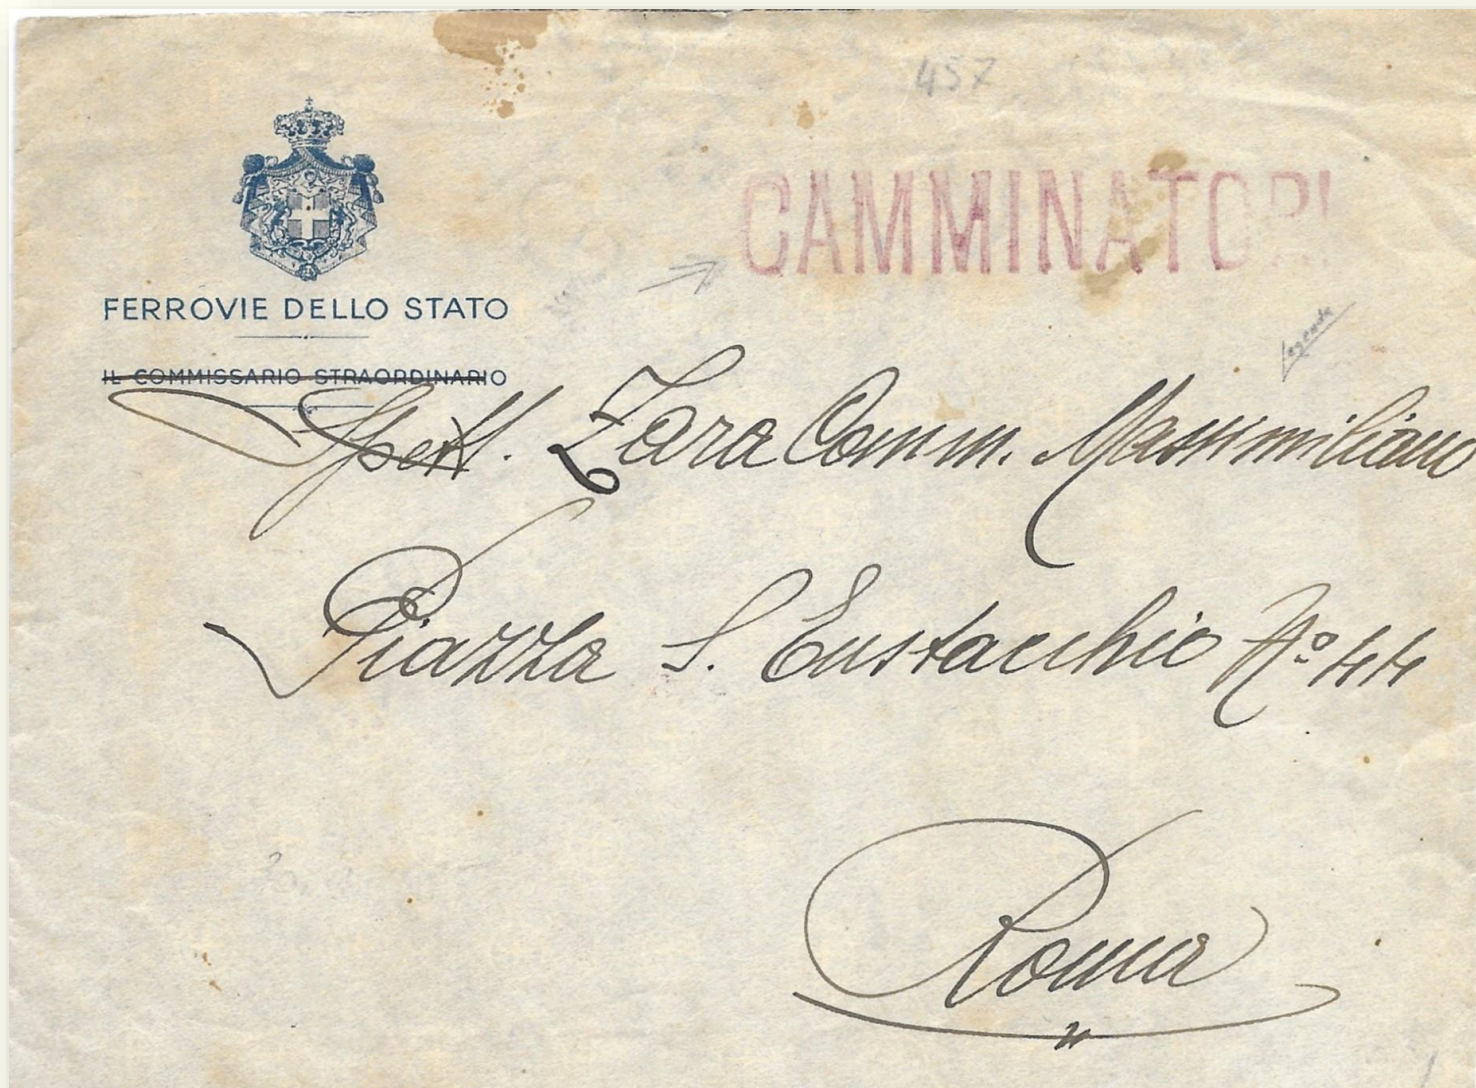 457
CAMMINATORI
FERROVIE DELLO STATO
IL COMMISSARIO STRAORDINARIO
Spett. Zara Comm. Massimiliano
Piazza S. Eustacchio No. 44
Roma